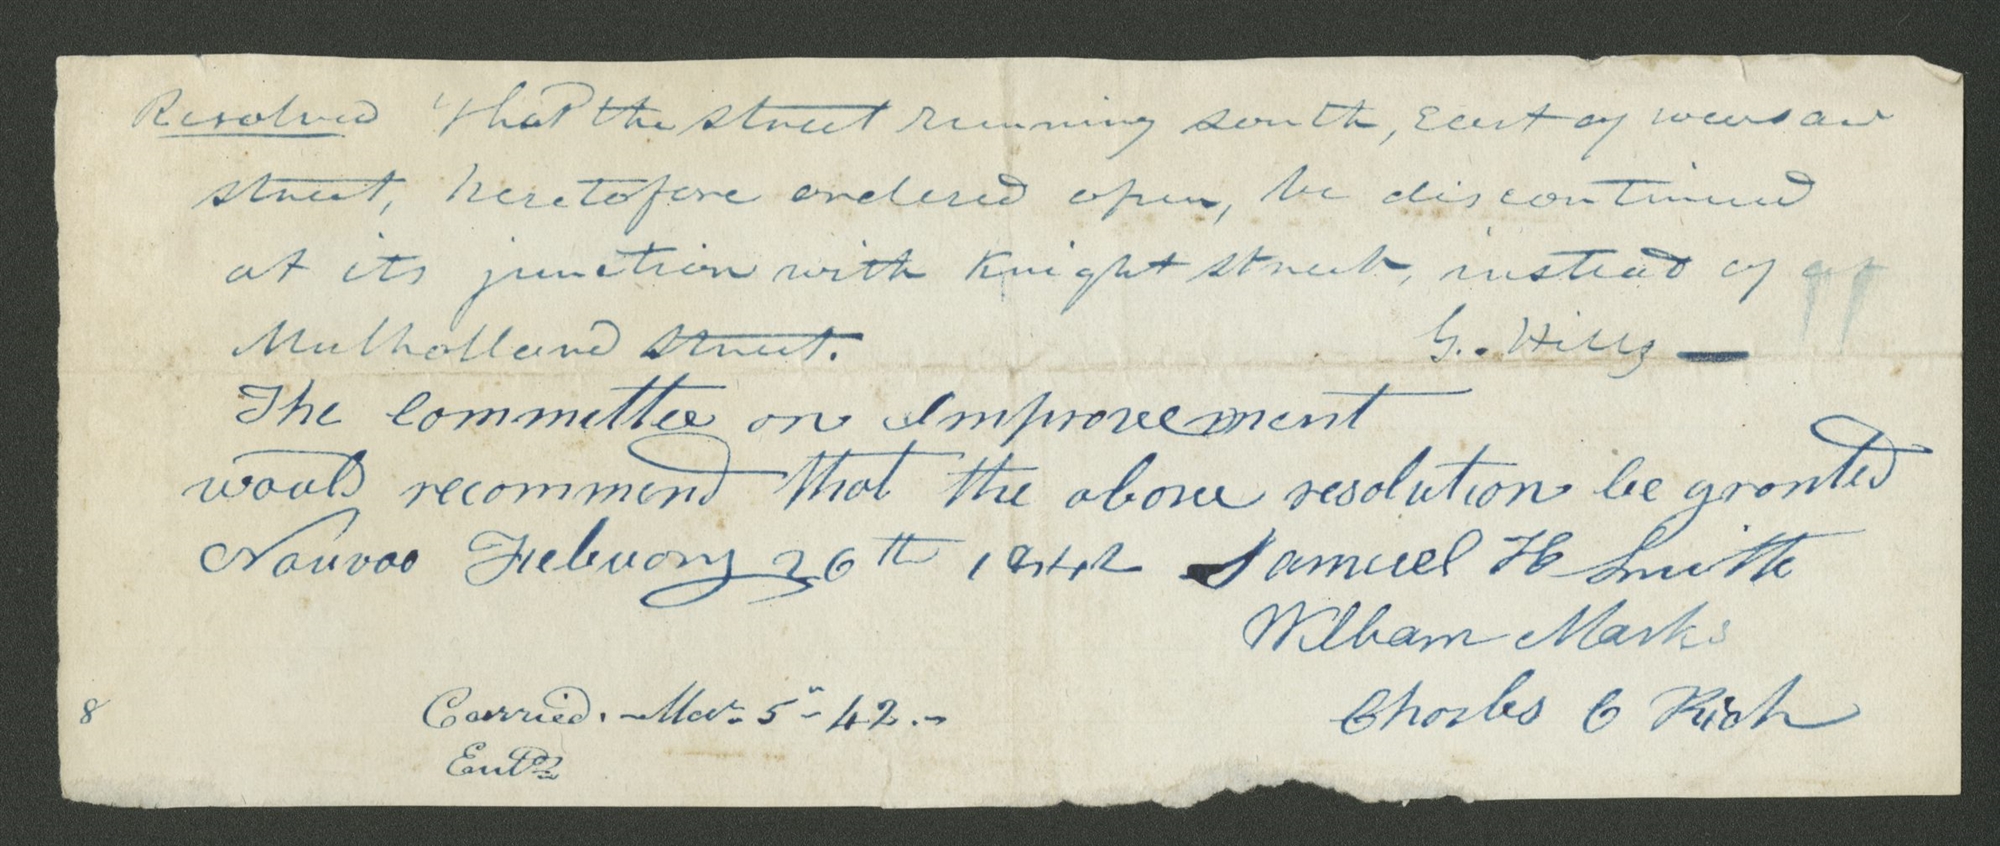 Resolved That the street running south, East of warsaw
street, heretofore ordered open, be discontinued
at its junction with Knight street, instead of at
Mulholland street.
G. Hills —
The committee on Improvement
would recommend that the above resolution be granted
Nauvoo Febuary 26th 1842 Samuel H Smith
William Marks
Charles C Rich
8
Carried. - Mar. 5" - 42. -
Entd